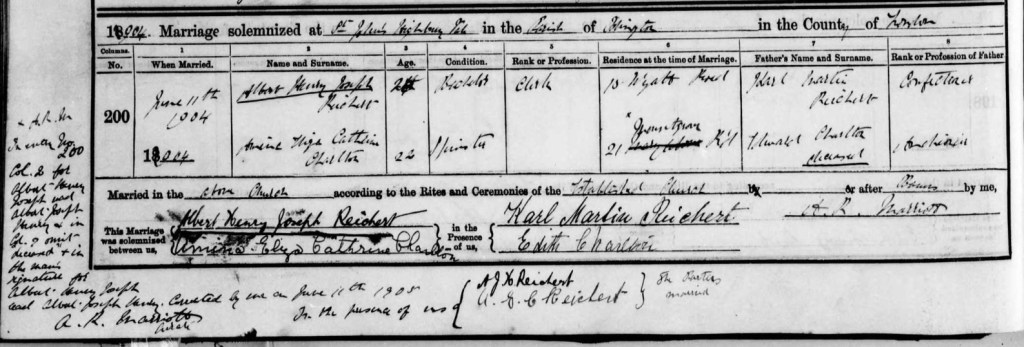 1904. Marriage solemnized at St John's Highbury Vale in the Parish of Islington in the County of London
Columns. 1 2 3 4 5 6 7 8
No. When Married. Name and Surname. Age. Condition. Rank or Profession. Residence at the time of Marriage. Father's Name and Surname. Rank or Profession of Father
200
June 11th 1904
Albert Henry Joseph Reichert
Bachelor
Clerk
Wyatt Road
Karl Martin Reichert
Confectioner
1904
Charlton
22
Spinster
21
Rd
Edward Charlton deceased
Married in the above Church according to the Rites and Ceremonies of the Established Church by or after Banns by me,
This Marriage was solemnized between us,
Albert Henry Joseph Reichert
Eliza Cathrine Charlton
in the Presence of us,
Karl Martin Reichert
Edith Charlton
A. R. Marriott
A. R. M
In entry No
200
Col. 2 for
Albert Henry
Joseph read
Albert Joseph
Henry & in
Col. 7 omit
deceased & in
the man's
signature for
Albert Henry Joseph
read Albert Joseph Henry. Corrected by me on June 11th 1905
A. R. Marriott
Curate
In the presence of us
A J H Reichert
A. E. C Reichert
The Parties
married